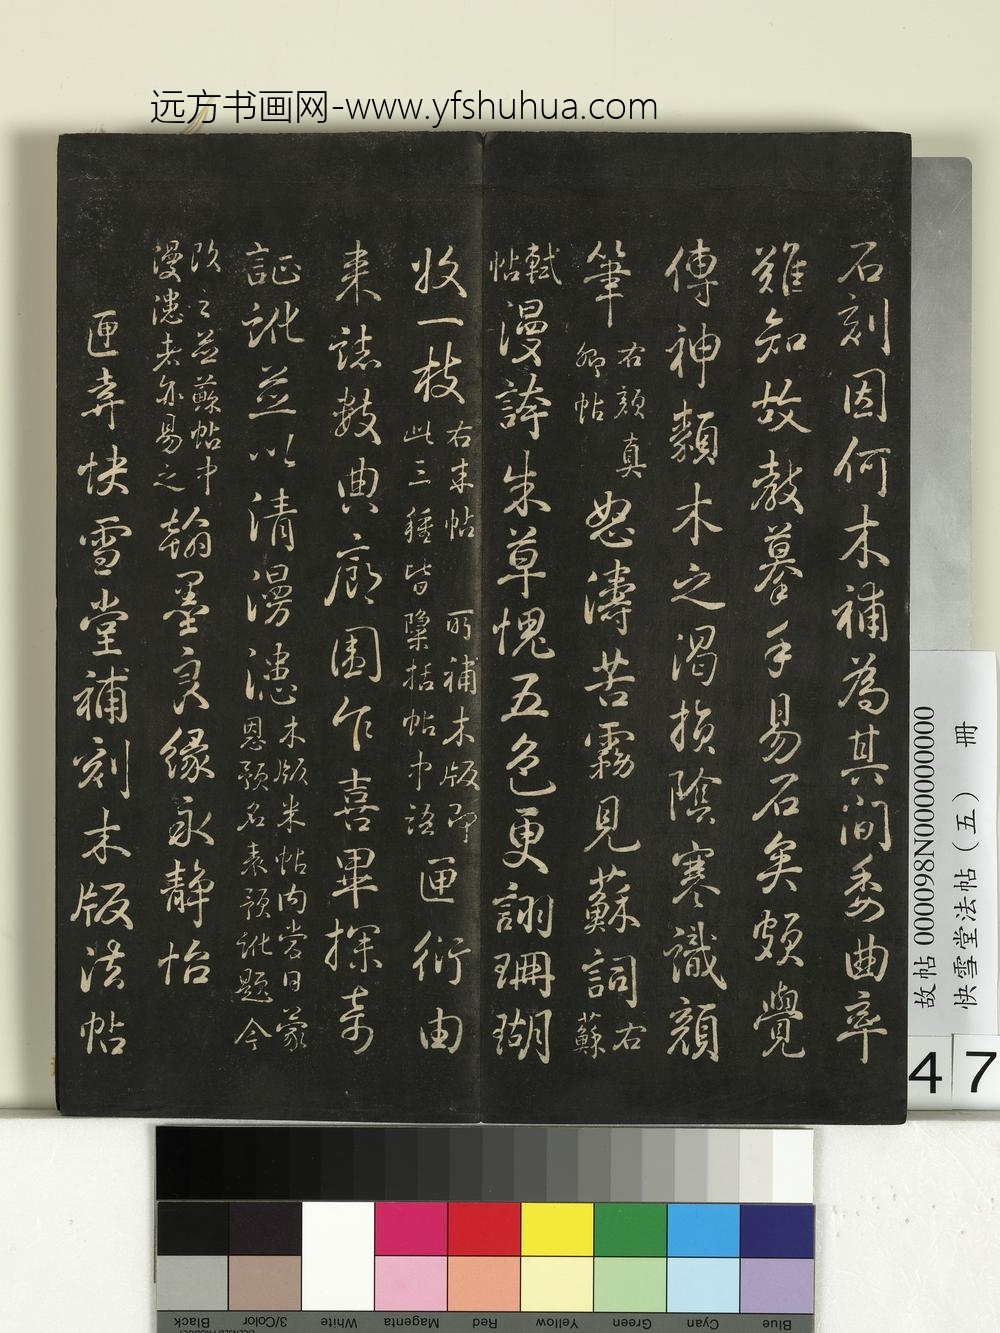 远方书画网-www.yfshuhua.com
石刻因何木補為其間委曲率
難知故教摹手易石矣頗覺
傳神類木之渴損陰寒識顏
筆右顏真卿帖怒濤苦霧見蘇詞右蘇
軾帖漫誇朱草愧五色更詡珊瑚
收一枝右米帖此三種皆檃括帖中語所補木版即匣衍由
来誌數典廊圍乍喜畢探奇
証訛並以清漫漶木版米帖内嘗日蒙恩預名表預訛題今
改之並蘇帖中漫漶者亦易之翰墨良緣永静怡
匣弆快雪堂補刻木版法帖
故帖 000098N000000000
快雪堂法帖（五） 冊
47
Black
3/Color
White
Magenta
Red
Yellow
Green
Cyan
Blue